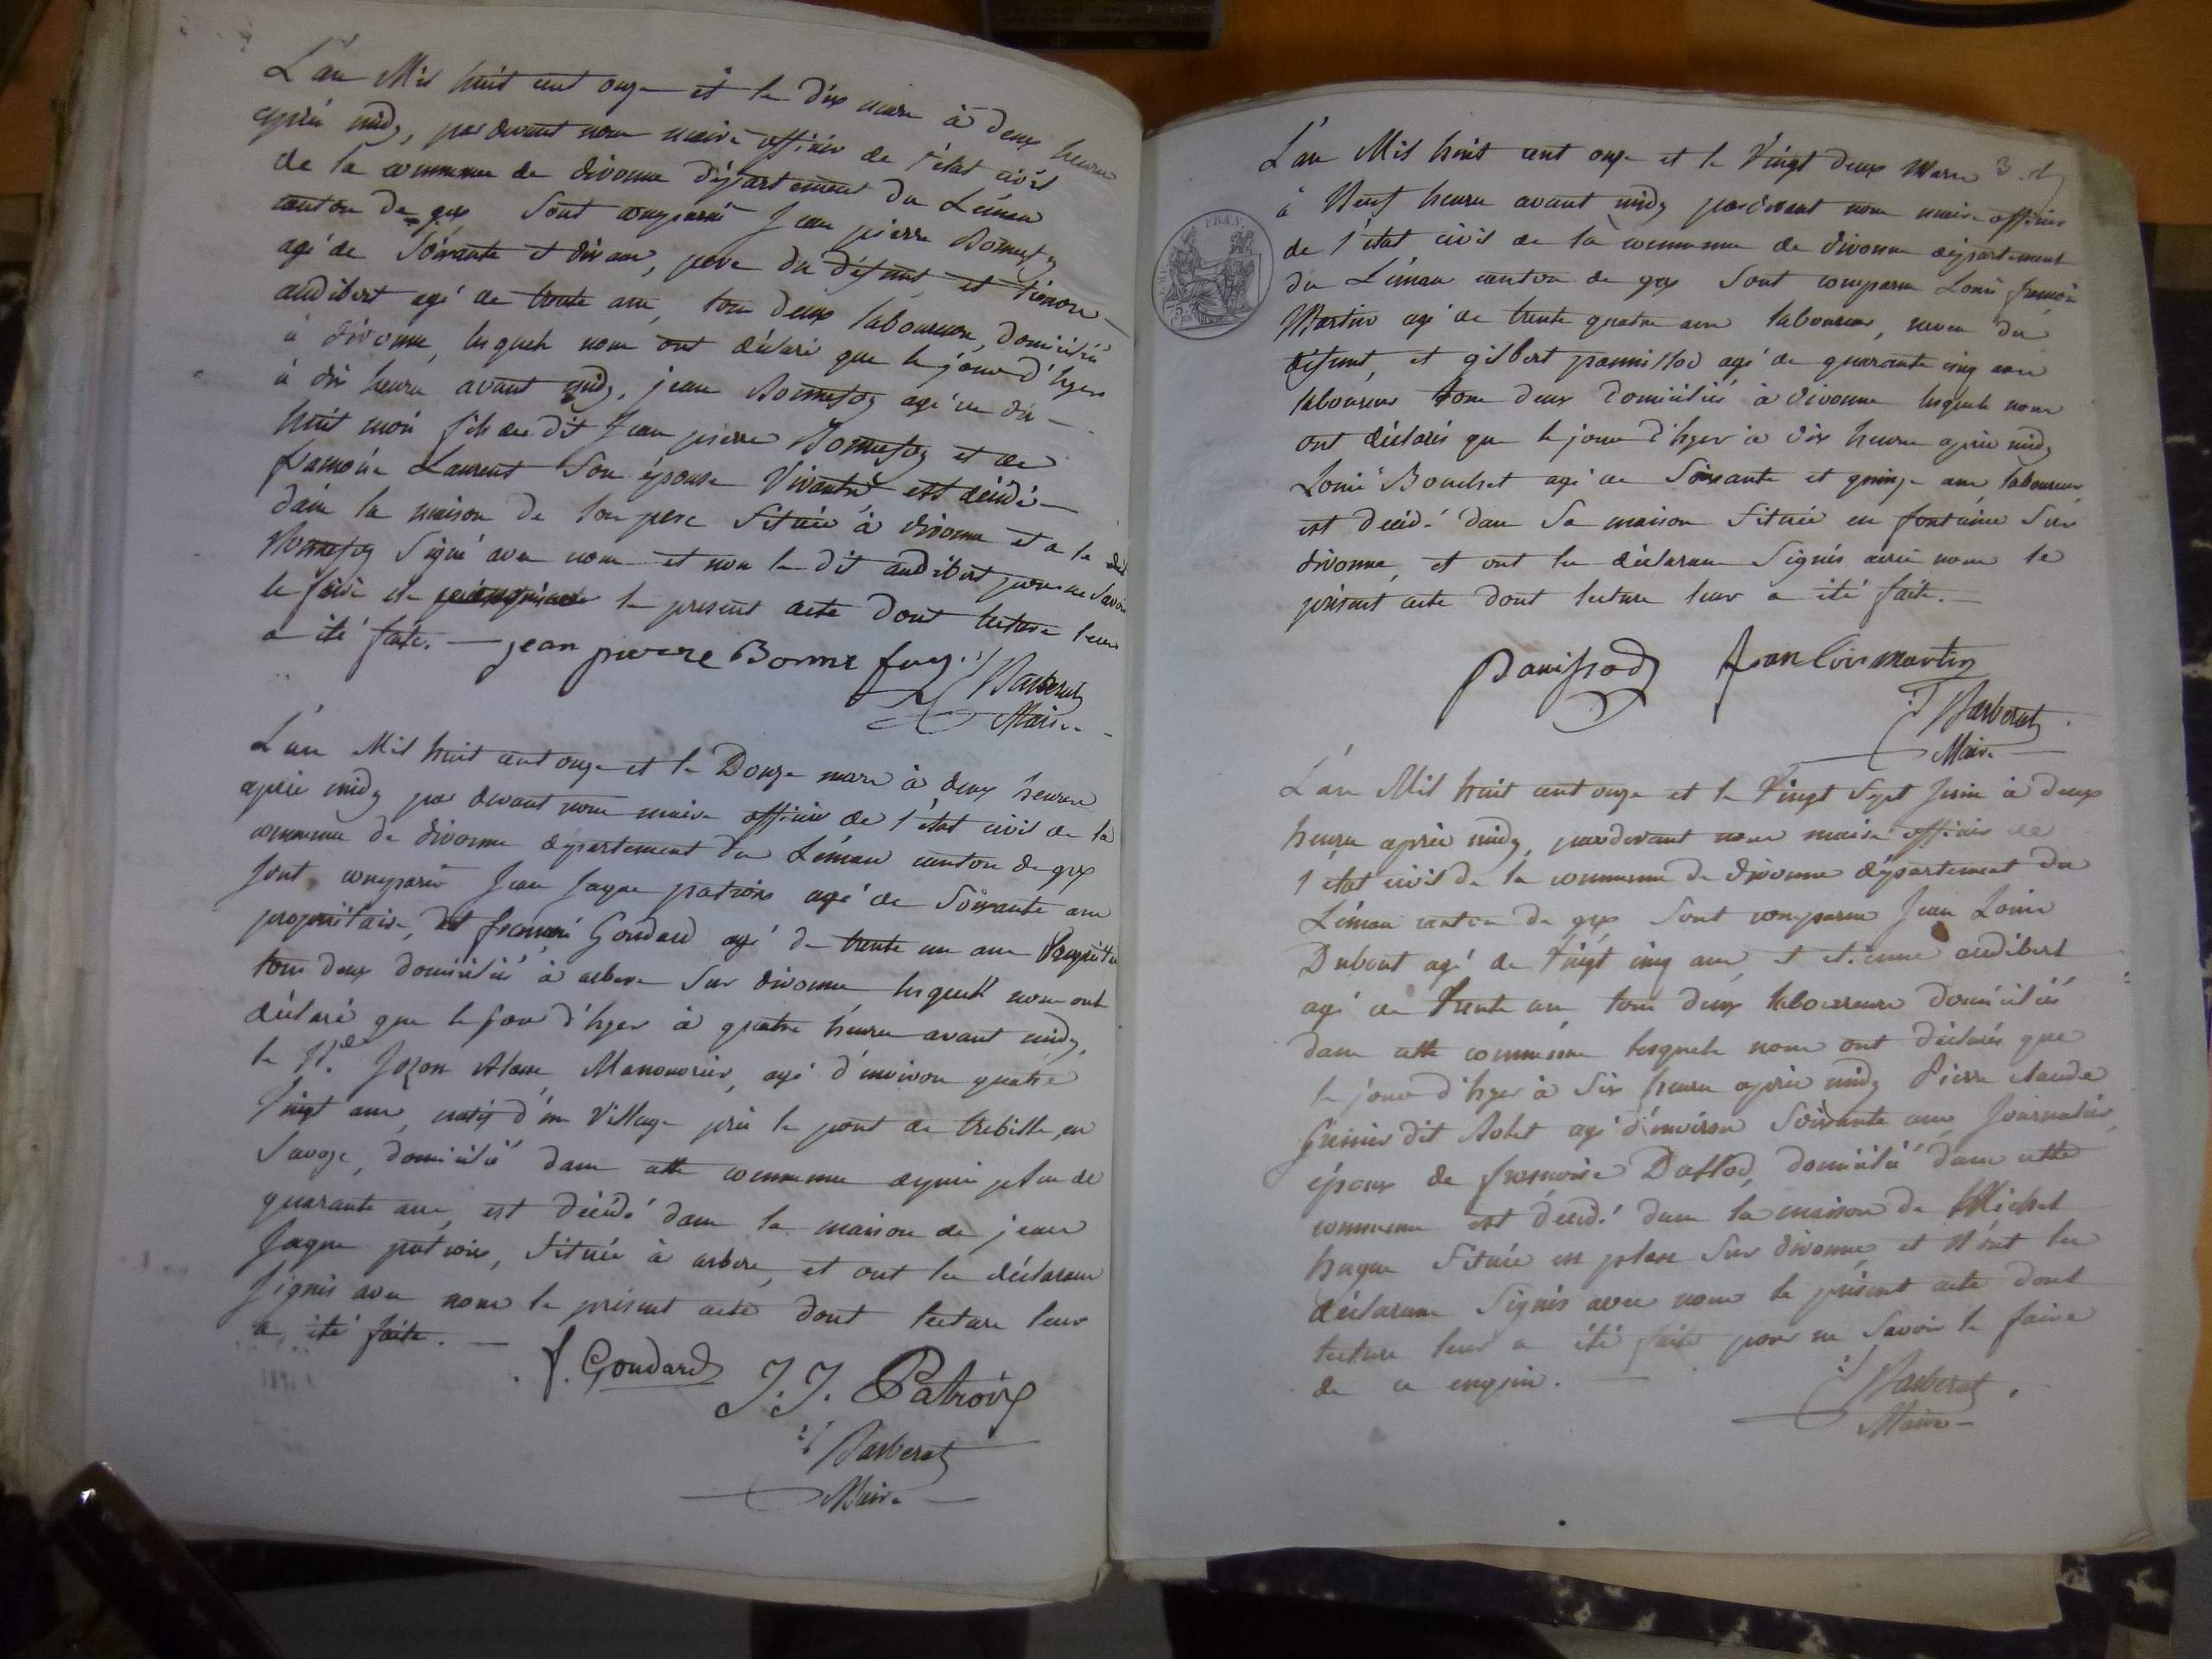 L'an Mil huit cent onze et le dix mars à deux heures
après midy, par devant nous maire officier de l'état civil
de la commune de divonne département du Léman
canton de gex Sont comparus Jean pierre Bonnefoy
agé de Soixante et dix ans, pere du défunt et Etienne
audibert agé de trente ans, tous deux laboureurs, domiciliés
à divonne, lesquels nous ont déclaré que le jour d'hyer
à dix heures avant midy, jean Bonnefoy agé de dix
huit mois fils du dit Jean pierre Bonnefoy et de
françoise Laurent Son épouse Vivante est décédé
dans la maison de Son pere Située à divonne et a le dit
Bonnefoy Signé avec nous et non le dit audibert pour ne Savoir
le faire de le present acte dont lecture leur
a été faite. — jean pierre Bonne foy
Barberat
Maire
L'an Mil huit cent onze et le Douze mars à deux heures
après midy par devant nous maire officier de l'état civil de la
commune de divonne département du Léman canton de gex
Sont comparus Jean Jaque patroix agé de Soixante ans
propriétaire, et françois Goudard agé de trente un ans Propriétaire
tous deux domiciliés à arbere Sur divonne lesquels nous ont
déclaré que le jour d'hyer à quatre heures avant midy,
le Manouvrier, agé d'environ quatre
Vingt ans, natif d'un Village près le pont de trebille, en
Savoye, domicilié dans cette commune depuis plus de
quarante ans, est décédé dans la maison de jean
Jaque patroix, Située à arbere, et ont les déclarans
Signés avec nous le présent acte dont lecture leur
a été faite. —
f. Goudard J. J. Patroix
Barberat
Maire
L'an Mil huit cent onze et le Vingt deux Mars 3.
à Neuf heures avant midy pardevant nous maire officier
de l'état civil de la commune de divonne département
du Léman canton de gex Sont comparus Louis françois
Martin agé de trente quatre ans laboureur, neveu du
défunt, et gilbert panissod agé de quarante cinq ans
laboureur tous deux domiciliés à divonne lesquels nous
ont déclarés que le jour d'hyer à dix heures après midy
Louis Bouchet agé de Soixante et quinze ans laboureur
est décédé dans Sa maison Située en fontaine Sur
divonne, et ont les déclarans Signés avec nous le
présent acte dont lecture leur a été faite. —
Panissod franlois martin
Barberat
Maire
L'an Mil huit cent onze et le Vingt Sept Juin à deux
heures après midy, pardevant nous maire officier de
l'état civil de la commune de divonne département du
Léman canton de gex Sont comparus Jean Louis
Dubout agé de Vingt cinq ans et etienne audibert
agé de trente ans tous deux laboureurs domiciliés
dans cette commune lesquels nous ont déclarés que
le jour d'hyer à Six heures après midy Pierre claude
Grenier dit Rolet agé d'environ Soixante ans Journalier,
époux de françoise Dallod, domicilié dans cette
commune est décédé dans la maison de Michel
hugue Située en plan Sur divonne et N'ont les
déclarans Signés avec nous le présent acte dont
lecture leur a été faite pour ne Savoir le faire
de ce enquis. —
Barberat
Maire